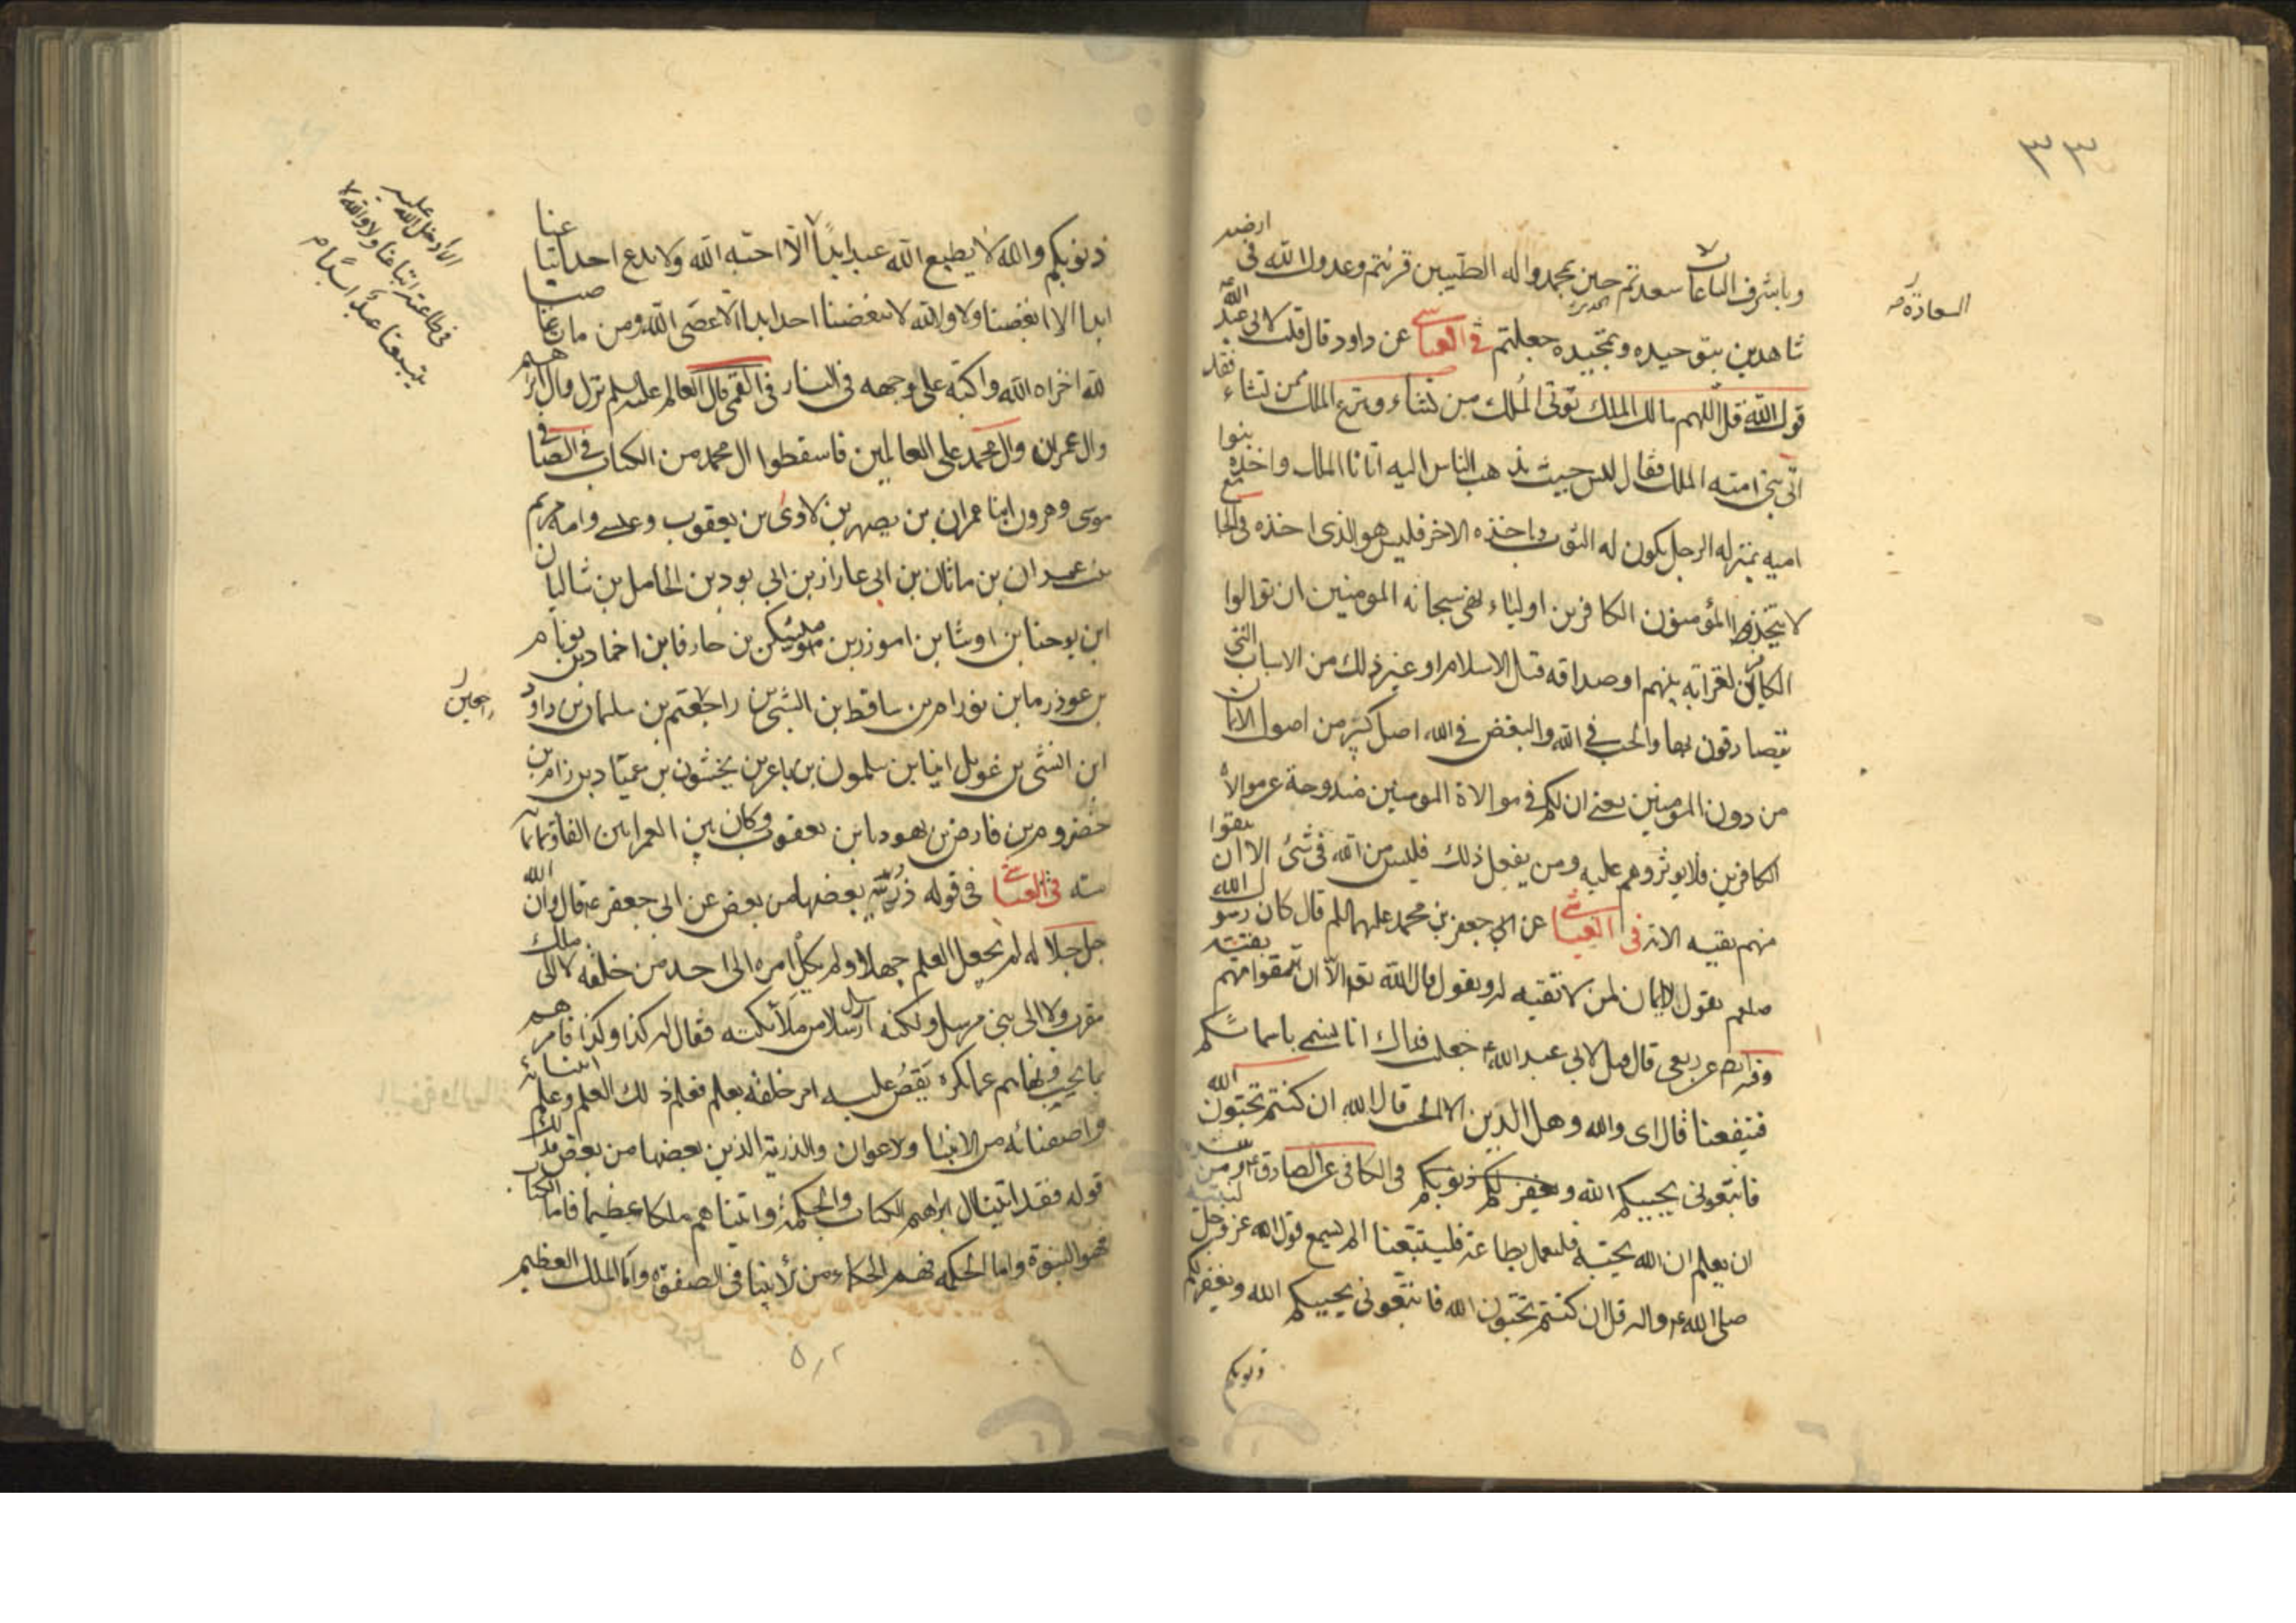 ٣٣
وباشرف الطاعات سعدتم حين بمحمد واله الطيبين قرنتم وعدول الله في ارضه
السعادة
شاهدين بتوحيده وتمجيده جعلتم في العياشي عن داود قال قلت لابي عبد الله
قول الله قل اللهم مالك الملك تؤتي الملك من تشاء وتنزع الملك ممن تشاء فقد
اتى بني امته الملك فقال ليس حيث يذهب الناس اليه اتانا الملك واخذه بنوا
اميه بمنزله الرجل يكون له الثوب وياخذه الاخر فليس هو الذي اخذه في
لا يتخذ المؤمنون الكافرين اولياء نهى سبحانه المومنين ان توالوا
الكافرين لقرابة بينهم او صداقه قبل الاسلام او غير ذلك من الاسباب التي
يتصادقون بها والحب في الله والبغض في الله اصل كبير من اصول الايمان
من دون المومنين يعني ان لكم في موالاة المومنين مندوحة عن موالاة
الكافرين فلا يوثروهم عليه ومن يفعل ذلك فليس من الله في شئ الا ان تتقوا
منهم تقيه الايه في العياشي عن ابي جعفر بن محمد عليهما السلم قال كان رسول الله
صلعم يقول لا ايمان لمن لا تقيه له ويقول قال الله تعه الا ان تتقوا منهم تقية
وفيه عن ربعي قال قيل لابي عبد الله ع جعلت فداك انا نسمي باسمائكم
فينفعنا قال اى والله وهل الدين الا الحب قال الله ان كنتم تحبون الله
فاتبعوني يحببكم الله ويغفر لكم ذنوبكم في الكافي عن الصادق ع من سره
ان يعلم ان الله يحبه فليعمل بطاعته فليتبعنا الم يسمع قول الله عز وجل لنبيه
صلى الله ع واله قل ان كنتم تحبون الله فاتبعوني يحببكم الله ويغفر لكم
ذنوبكم
ذنوبكم والله لا يطيع الله عبد ابدا الا احبه الله ولا يدع احد اتباعنا
الا ادخل الله عليه
في طاعته اتباعنا ولا والله لا
يتبعنا عبد ابدا م
ابدا الا ابغضنا ولا والله لا يبغضنا احد ابدا الا عصى الله ومن مات عاصيا
لله اخزاه الله واكبه على وجهه في النار في القمي قال العالم عليه السلم نزل وال ابرهيم
وال عمران وال محمد على العالمين فاسقطوا ال محمد من الكتاب في الصافي
موسى وهرون ابنا عمران بن يصهر بن لاوى بن يعقوب وعيسى وامه مريم
بنت عمران بن ماثان بن ابي عازار بن ابي بود بن الحامل بن شاليان
ابن يوحنا بن اوشا بن اموزر بن مليكن بن حارفا بن اخماد بن يونام
بن عوذرما بن نورام بن ساقط بن الشى بن راجعتم بن سليمان بن داود
راجعين
ابن انشى بن غوبل ابنا بن سلمون بن باعز بن يخشون بن عميناد بن زام بن
حضروم بن فارض بن يهودا بن يعقوب وكان بين العمرانين الف وثمانمائة
سنه في العياشي في قوله ذرية بعضها من بعض عن ابي جعفر ع قال وان الله
جل جلاله لم يجعل العلم جهلا ولم يكل امره الى احد من خلقه لا الى ملك
مقرب ولا الى نبي مرسل ولكنه ارسل رسلا من ملائكته فقال له كذا وكذا فامرهم
بما يحب فنهاهم عما كره يقص عليه امر خلقه بعلم فعلم ذلك العلم وعلم انبيائه
واصفيائه من الانبيا ولاعوان والذرية الذين بعضها من بعض فذلك
قوله فقد اتينا ال ابرهيم الكتاب والحكمة واتيناهم ملكا عظيما فاما الكتاب
فهو النبوة واما الحكمه فهم الحكماء من الانبيا في الصفوة واما الملك العظيم